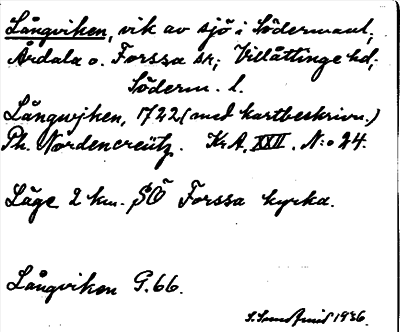 Långviken, vik av sjö i Södermanl.,
Årdala o. Forssa sr; Villåttinge hd;
Söderm. l.
Långwjken, 1722 (med kartbeskrivn.)
Ph. Nordencreütz. K.A. XXII. N:o 24.
Läge 2 km. SÖ Forssa kyrka.
Långviken G.66.
1936.